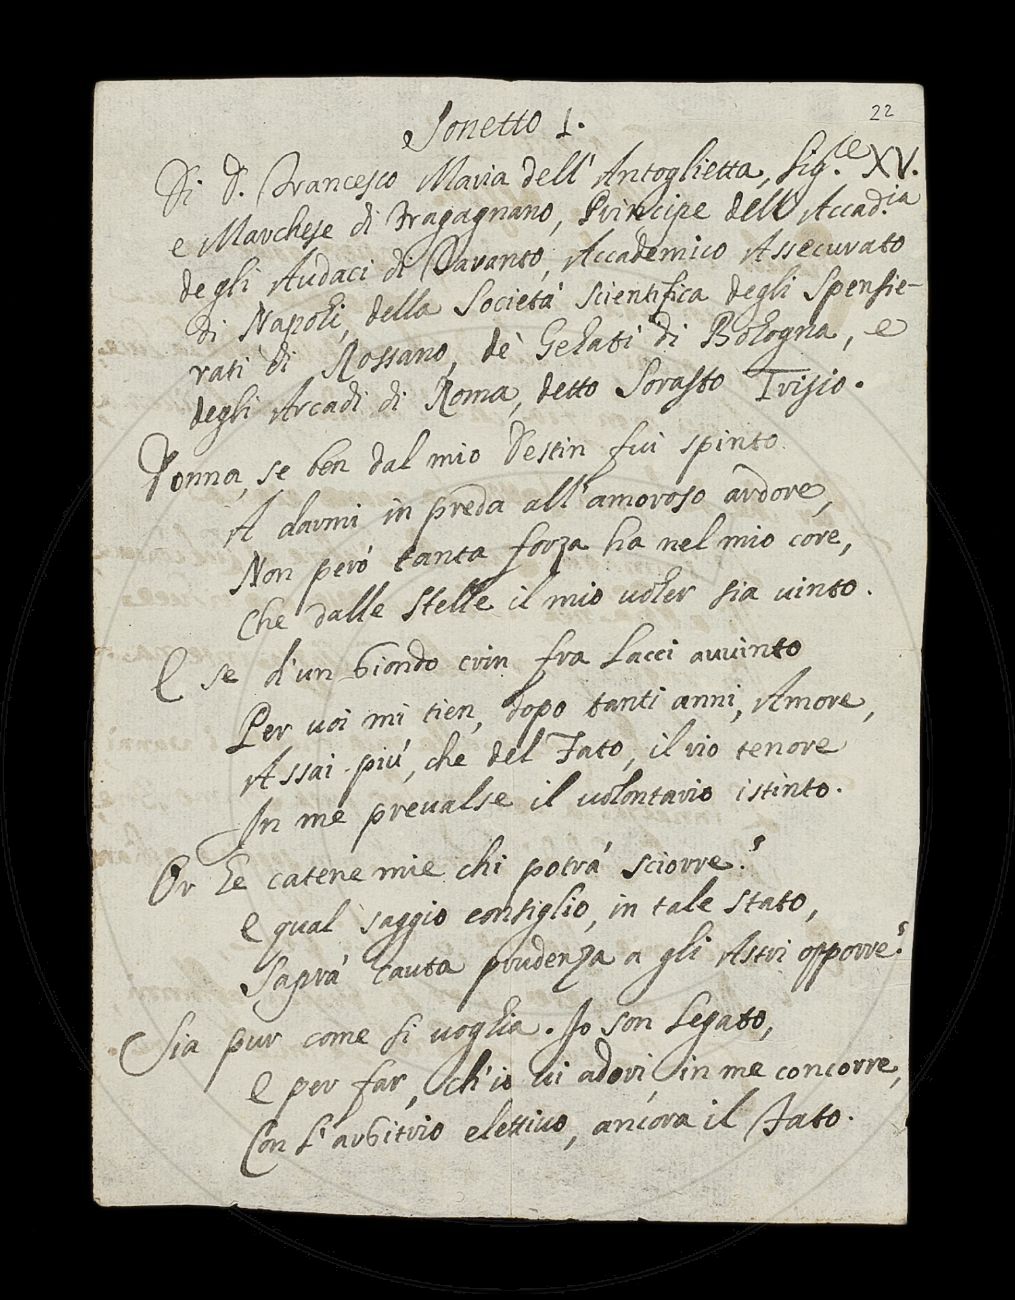 22
Sonetto I.
Di D. Francesco Maria dell' Antoglietta, Sig.re XV.
e Marchese di Fragagnano, Principe dell' Accad.ia
degli Audaci di Taranto, Accademico Assecurato
di Napoli, della Società Scientifica degli Spensie-
rati di Rossano, de' Gelati di Bologna, e
degli Arcadi di Roma, detto Sorasto Trisio.
Donna, se ben dal mio Destin fui spinto
A darmi in preda all'amoroso ardore,
Non però tanta forza ha nel mio core,
Che dalle Stelle il mio voler sia uinto.
E se d'un biondo crin fra Lacci auuinto
Per uoi mi tien, dopo tanti anni, Amore,
Assai più, che del Fato, il rio tenore
In me preualse il uolontario istinto.
Or le catene mie chi potrà sciorre?
E qual saggio consiglio, in tale stato,
Saprà cauta prudenza a gli Astri opporre?
Sia pur come si uoglia. Io son Legato,
E per far, ch'io ui adori, in me concorre,
Con l'arbitrio elettiuo, ancora il Fato.